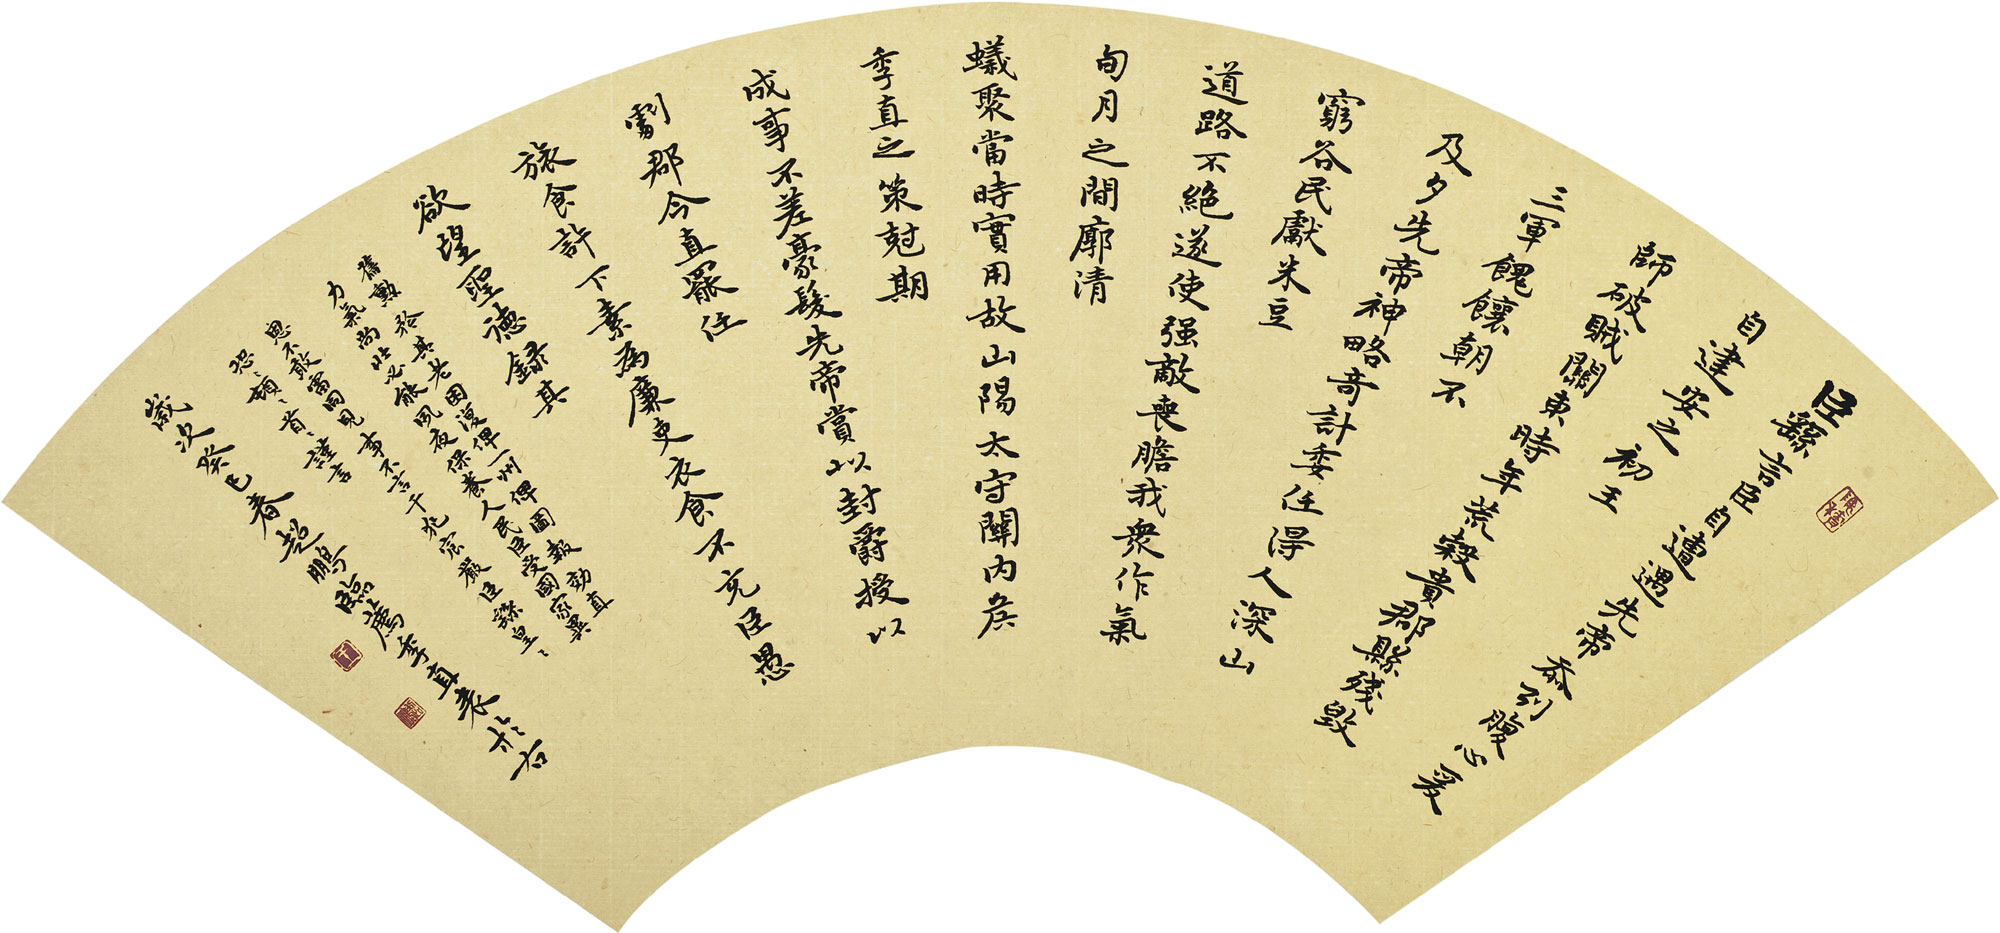 臣繇言臣自遭遇先帝忝列腹心爰
自建安之初王
師破賊關東時年荒穀貴郡縣殘毀
三軍餽饟朝不
及夕先帝神略奇計委任得人深山
窮谷民獻米豆
道路不絕遂使强敵喪膽我衆作氣
旬月之間廓清
蟻聚當時實用故山陽太守關內侯
季直之策尅期
成事不差豪髮先帝賞以封爵授以
劇郡今直罷任
旅食許下素為廉吏衣食不充臣愚
欲望聖德錄其
舊勳矜其老困復俾一州俾圖報効直
力氣尚壯必能夙夜保養人民臣受國家異
恩不敢雷同見事不言干犯宸嚴臣繇皇〻
恐〻頓〻首〻謹言
歲次癸巳春超鵬臨薦季直表於右